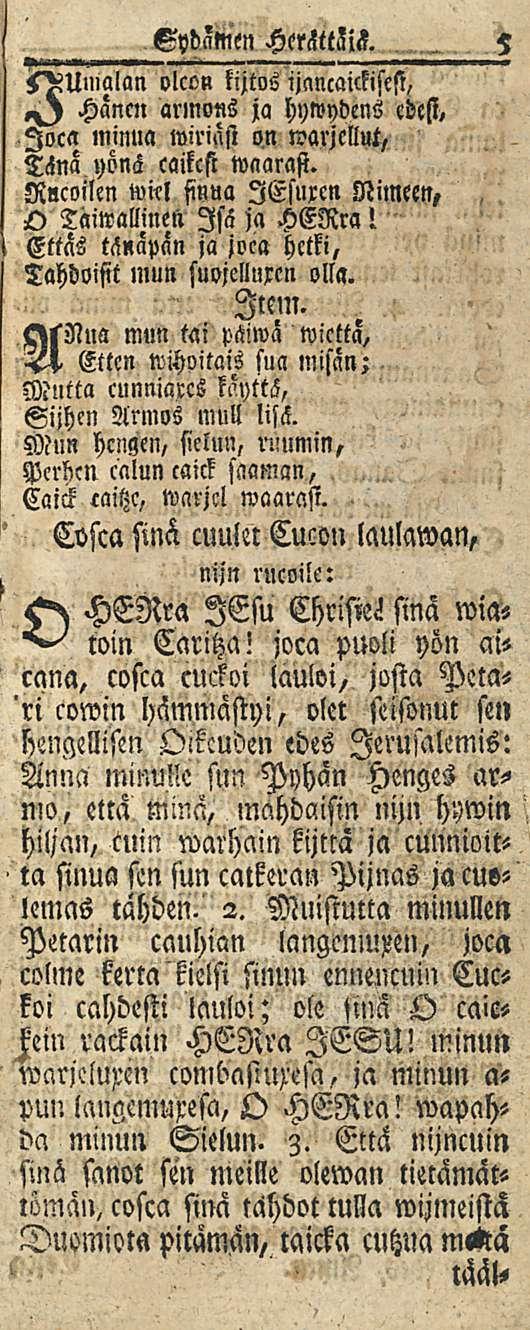 Sydämen Herättäjä. 5
JUmalan olcon kijtos ijancaickisest,
Hänen armons ja hywydens edest,
Joca minua wiriäst on warjellut,
Tänä yönä caikest waarast.
Rucoilen wiel sinua JEsuxen Nimeen,
O Taiwallinen Isä ja HERra!
Ettäs tänäpän ja joca hetki,
Tahdoisit mun suojelluxen olla.
Item.
ANna mun tai päiwä wiettä,
Etten wihoitais sua misän;
Mutta cunniaxes käyttä,
Sijhen Armos mull lisä.
Mun hengen, sielun, ruumin,
Perhen calun caick saaman,
Caick caitze, warjel waarast.
Cosca sinä cuulet Cucon laulawan,
nijn rucoile:
O HERra JEsu Christe! sinä wia-
toin Caritza! joca puoli yön ai-
cana, cosca cuckoi lauloi, josta Peta-
ri cowin hämmästyi, olet seisonut sen
hengellisen Oikeuden edes Jerusalemis:
Anna minulle sun Pyhän Henges ar-
mo, että minä, mahdaisin nijn hywin
hiljan, cuin warhain kijttä ja cunnioit-
ta sinua sen sun catkeran Pijnas ja cuo-
lemas tähden. 2. Muistutta minullen
Petarin cauhian langemuxen, joca
colme kerta kielsi sinun ennencuin Cuc-
koi cahdesti lauloi; ole sinä O caic-
kein rackain HERra JESU! minun
warjeluxen combastuxesa, ja minun a-
pun langemuxesa, O HERra! wapah-
da minun Sielun. 3. Että nijncuin
sinä sanot sen meille olewan tietämät-
tömän, cosca sinä tahdot tulla wijmeistä
Duomiota pitämän, taicka cutzua meitä
tääl-